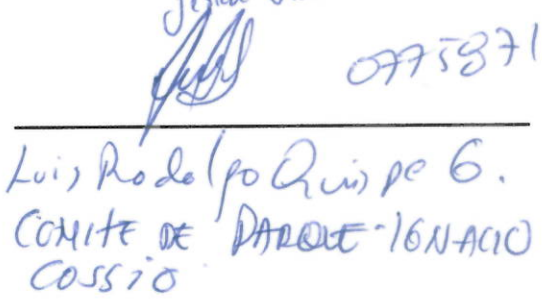 0775871
Luis Rodolfo Quispe G.
COMITE DE PARQUE-IGNACIO
COSSIO